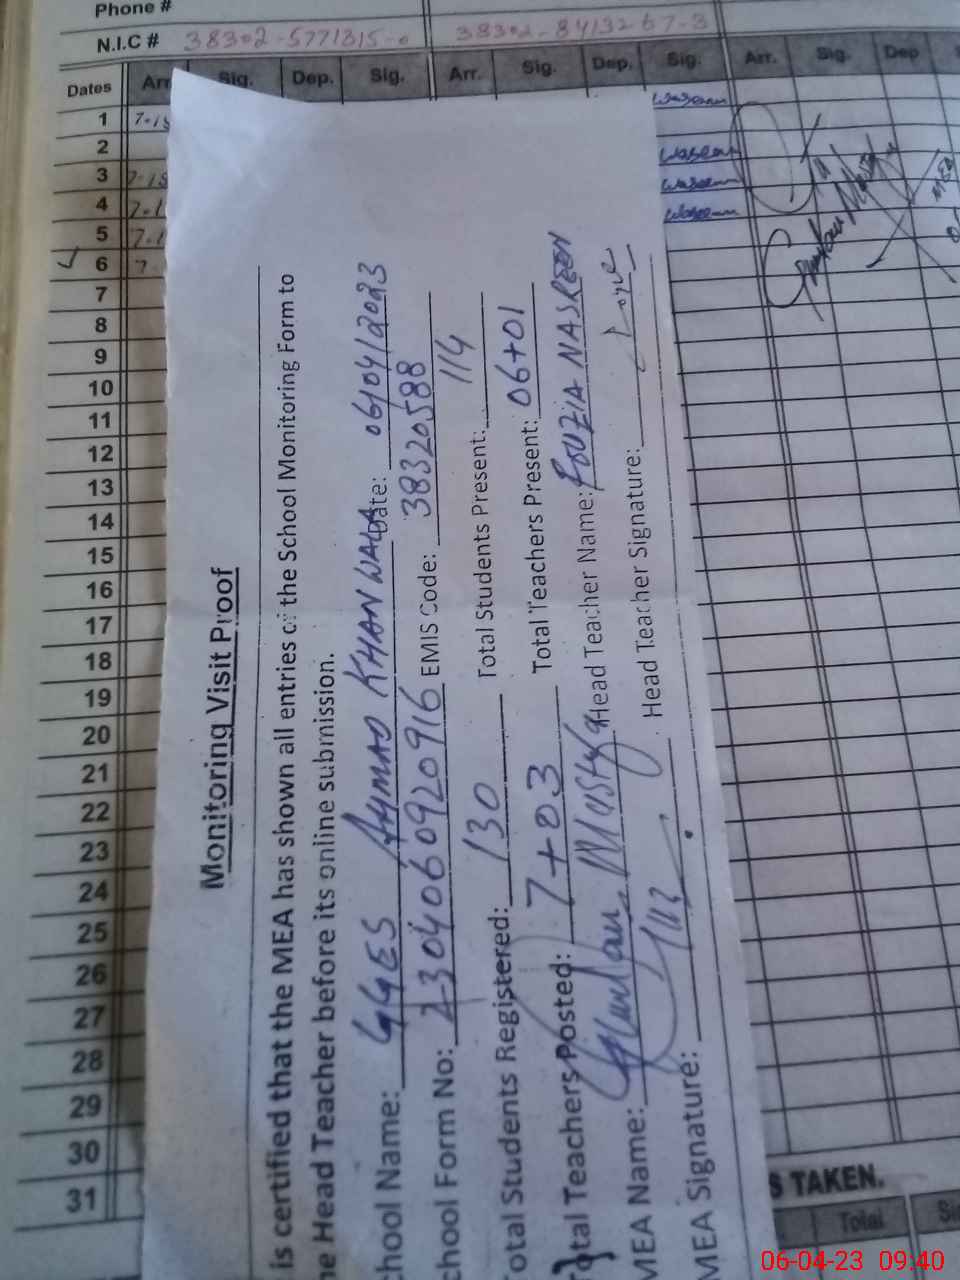 Phone #
N.I.C # 38302-5771315-0 38302-8413267-3
Dates Arr Sig. Dep. Sig. Arr. Sig. Dep. Sig. Arr. Sig. Dep
1 7-15 Waseem
2 Waseem
3 7-15 Waseem
4 7-1 Waseem
5 7-1
6 7-
7
8
9
10
11
12
13
14
15
16
17
18
19
20
21
22
23
24
25
26
27
28
29
30
31
S TAKEN.
Total
Monitoring Visit Proof
is certified that the MEA has shown all entries of the School Monitoring Form to
he Head Teacher before its online submission.
chool Name: GGES AHMAD KHAN WALA Date: 06/04/2023
chool Form No: 2-3040606920916 EMIS Code: 38320588
otal Students Registered: 130 Total Students Present: 114
otal Teachers Posted: 7+03 Total Teachers Present: 06+01
MEA Name: Ghulam Mustafa Head Teacher Name: FOUZIA NASREEN
MEA Signature: Head Teacher Signature:
06-04-23 09:40